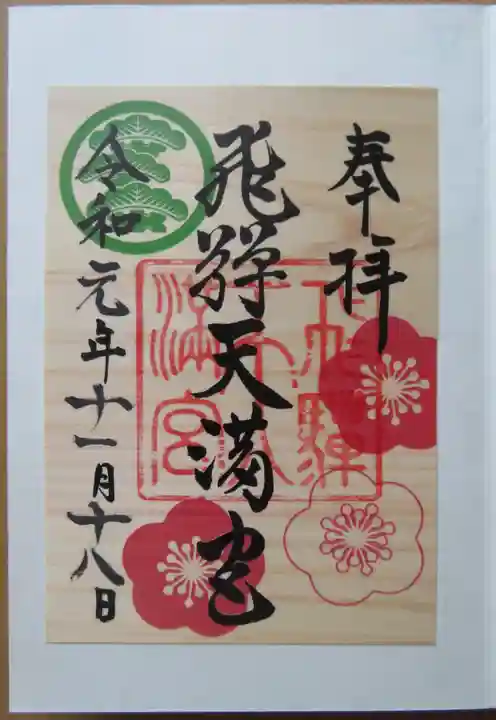 奉拝
飛騨天満宮
飛騨天満宮
令和元年十一月十八日